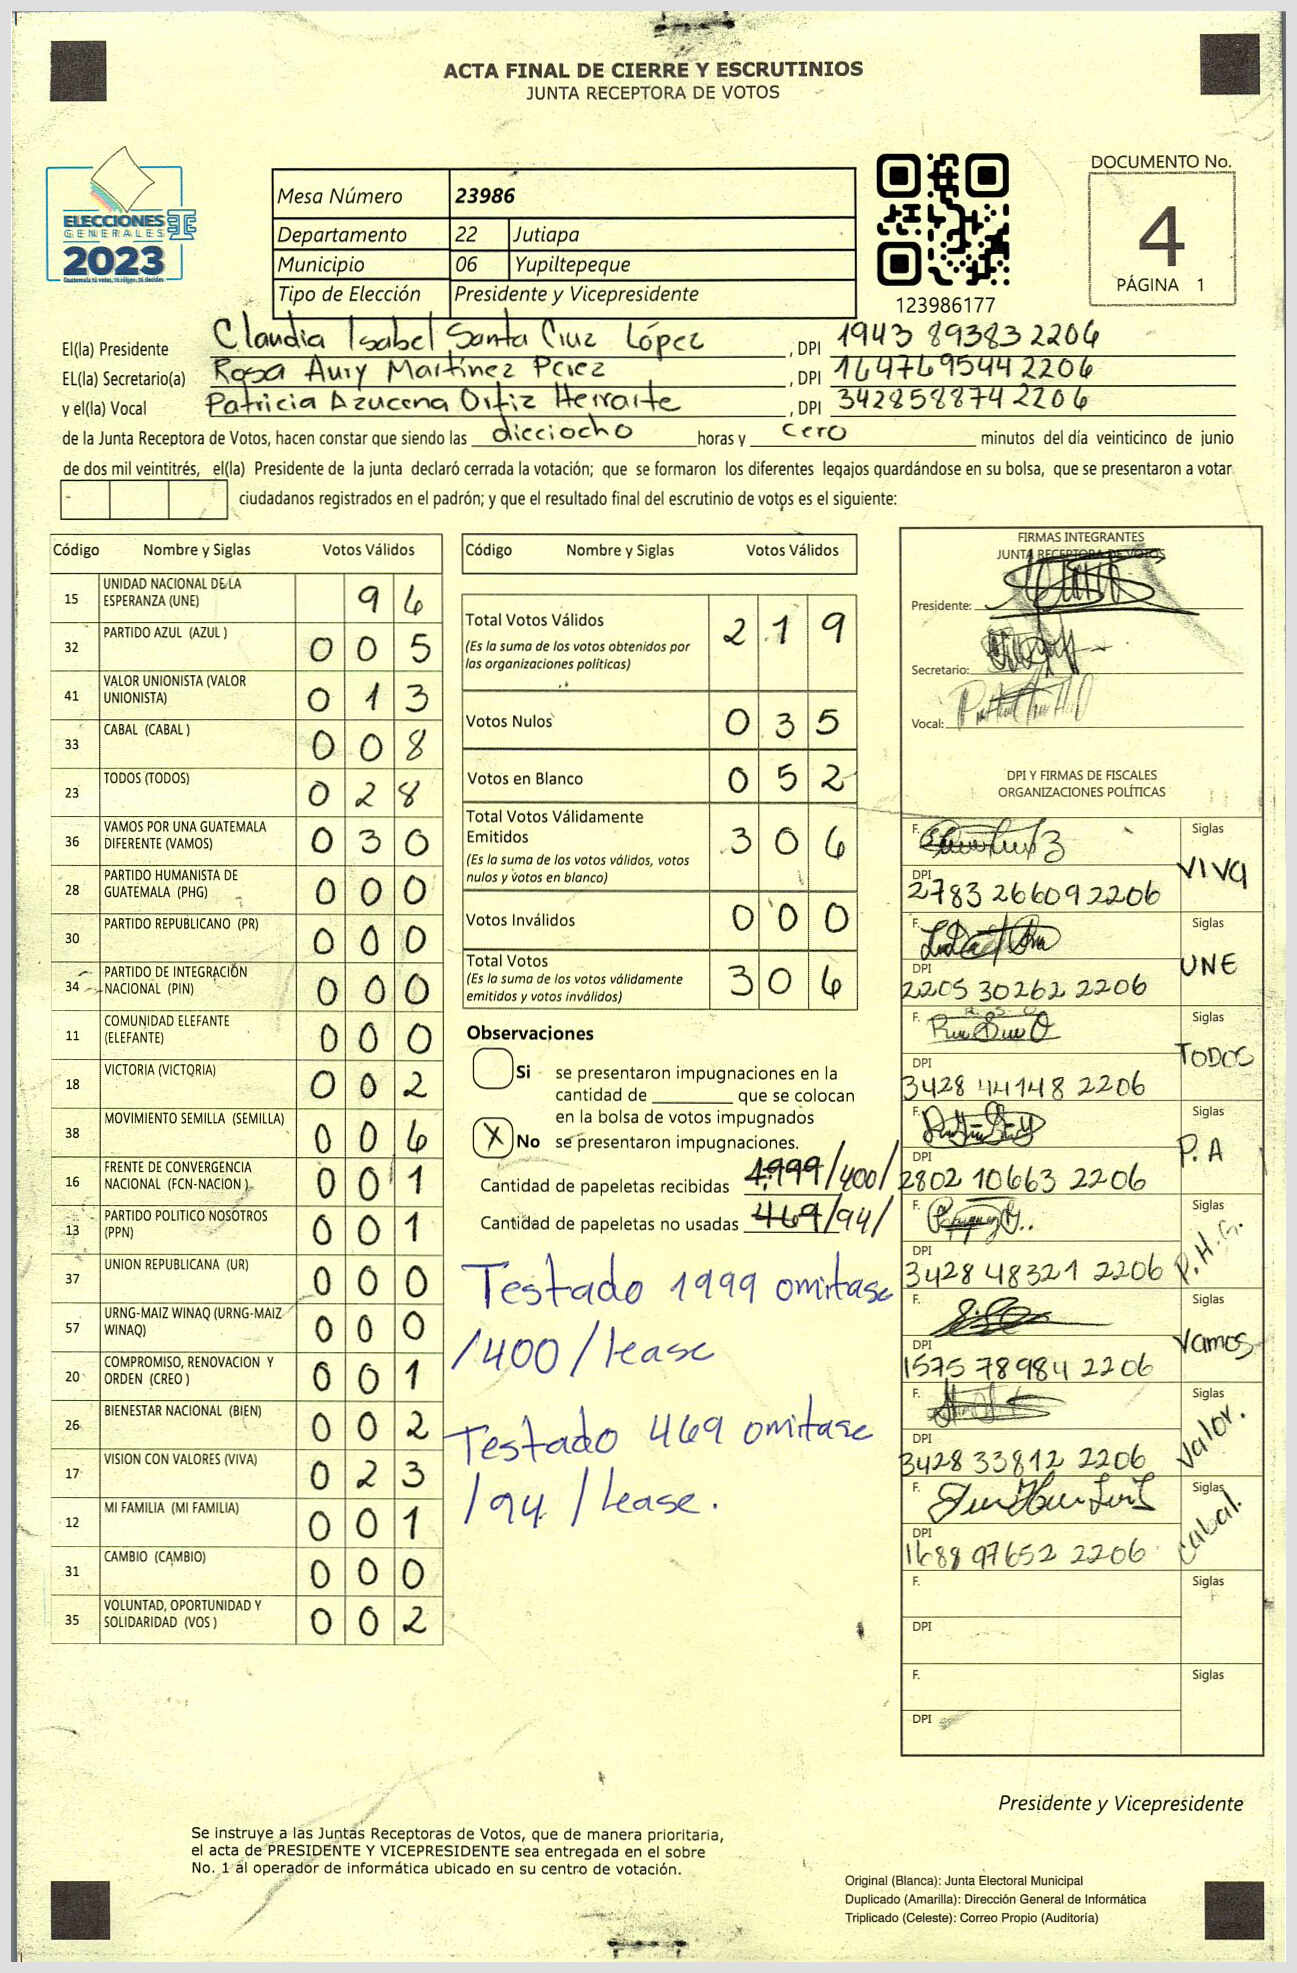 ACTA FINAL DE CIERRE Y ESCRUTINIOS
JUNTA RECEPTORA DE VOTOS
ELECCIONES
GENERALES
2023
Mesa Número 23986
Departamento 22 Jutiapa
Municipio 06 Yupiltepeque
Tipo de Elección Presidente y Vicepresidente
123986177
DOCUMENTO No.
4
PÁGINA 1
El(la) Presidente Claudia Isabel Santa Cruz López , DPI 1943 89383 2206
EL(la) Secretario(a) Rosa Aury Martínez Perez , DPI 1647695442206
y el(la) Vocal Patricia Azucena Ortiz Herrarte , DPI 3428588742206
de la Junta Receptora de Votos, hacen constar que siendo las dieciocho horas y cero minutos del día veinticinco de junio
de dos mil veintitrés, el(la) Presidente de la junta declaró cerrada la votación; que se formaron los diferentes legajos guardándose en su bolsa, que se presentaron a votar
ciudadanos registrados en el padrón; y que el resultado final del escrutinio de votos es el siguiente:
Código Nombre y Siglas Votos Válidos
15 UNIDAD NACIONAL DE LA ESPERANZA (UNE) 96
32 PARTIDO AZUL (AZUL ) 005
41 VALOR UNIONISTA (VALOR UNIONISTA) 013
33 CABAL (CABAL ) 008
23 TODOS (TODOS) 028
36 VAMOS POR UNA GUATEMALA DIFERENTE (VAMOS) 030
28 PARTIDO HUMANISTA DE GUATEMALA (PHG) 000
30 PARTIDO REPUBLICANO (PR) 000
34 PARTIDO DE INTEGRACIÓN NACIONAL (PIN) 000
11 COMUNIDAD ELEFANTE (ELEFANTE) 000
18 VICTORIA (VICTORIA) 002
38 MOVIMIENTO SEMILLA (SEMILLA) 006
16 FRENTE DE CONVERGENCIA NACIONAL (FCN-NACION ) 001
13 PARTIDO POLITICO NOSOTROS (PPN) 001
37 UNION REPUBLICANA (UR) 000
57 URNG-MAIZ WINAQ (URNG-MAIZ WINAQ) 000
20 COMPROMISO, RENOVACION Y ORDEN (CREO ) 001
26 BIENESTAR NACIONAL (BIEN) 002
17 VISION CON VALORES (VIVA) 023
12 MI FAMILIA (MI FAMILIA) 001
31 CAMBIO (CAMBIO) 000
35 VOLUNTAD, OPORTUNIDAD Y SOLIDARIDAD (VOS ) 002
Código Nombre y Siglas Votos Válidos
Total Votos Válidos 219
(Es la suma de los votos obtenidos por
las organizaciones políticas)
Votos Nulos 035
Votos en Blanco 052
Total Votos Válidamente
Emitidos 306
(Es la suma de los votos válidos, votos
nulos y votos en blanco)
Votos Inválidos 000
Total Votos 306
(Es la suma de los votos válidamente
emitidos y votos inválidos)
Observaciones
Si se presentaron impugnaciones en la
cantidad de ________ que se colocan
en la bolsa de votos impugnados
X No se presentaron impugnaciones.
Cantidad de papeletas recibidas 1,999/400/
Cantidad de papeletas no usadas 469/94/
Testado 1999 omitase
/400/lease
Testado 469 omitase
/94/lease.
FIRMAS INTEGRANTES
JUNTA RECEPTORA DE VOTOS
Presidente:
Secretario:
Vocal:
DPI Y FIRMAS DE FISCALES
ORGANIZACIONES POLÍTICAS
F. Siglas
DPI 2783 26609 2206 VIVA
F. Siglas
DPI 2205 30262 2206 UNE
F. Siglas
DPI 3428 44148 2206 TODOS
F. Siglas
DPI 2802 10663 2206 P.A
F. Siglas
DPI 3428 48321 2206 P.H.G.
F. Siglas
DPI 1575 78984 2206 Vamos
F. Siglas
DPI 3428 33812 2206 Valor.
F. Siglas
DPI 1688 97652 2206 Cabal.
F. Siglas
DPI
F. Siglas
DPI
Presidente y Vicepresidente
Se instruye a las Juntas Receptoras de Votos, que de manera prioritaria,
el acta de PRESIDENTE Y VICEPRESIDENTE sea entregada en el sobre
No. 1 al operador de informática ubicado en su centro de votación.
Original (Blanca): Junta Electoral Municipal
Duplicado (Amarilla): Dirección General de Informática
Triplicado (Celeste): Correo Propio (Auditoría)